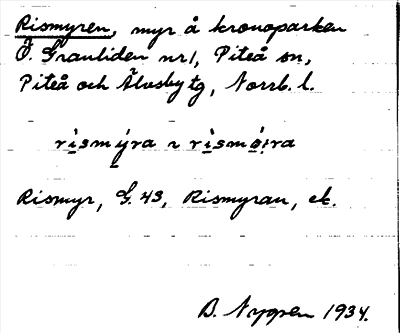 Rismyren, myr å kronoparken
Ö. Granliden nr 1, Piteå sn,
Piteå och Älvsby tg, Norrb. l.
rismýra ~ rismó̤ira
Rismyr, G. 43, Rismyran, ek.
B. Nygren 1934.